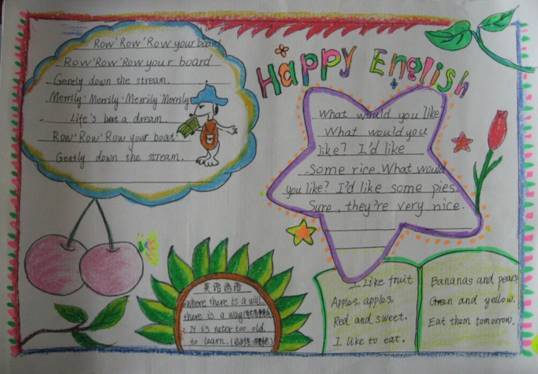 Happy English
Row Row Row your board
Row Row Row your board
Gently down the stream.
Merrily Merrily Merrily Merrily
Life's but a dream.
Row Row Row your boat
Geatly down the stream.
What would you like
What would you
like? I'd like
Some rice. What would
you like? I'd like some pies
Sure, they're very nice.
英语谚语
where there is a will,
there is a way
2 It is never too old
to learn.
I like fruit
Apples apples.
Red and sweet.
I like to eat.
Bananas and pears
Green and yellow.
Eat them tomorrow.